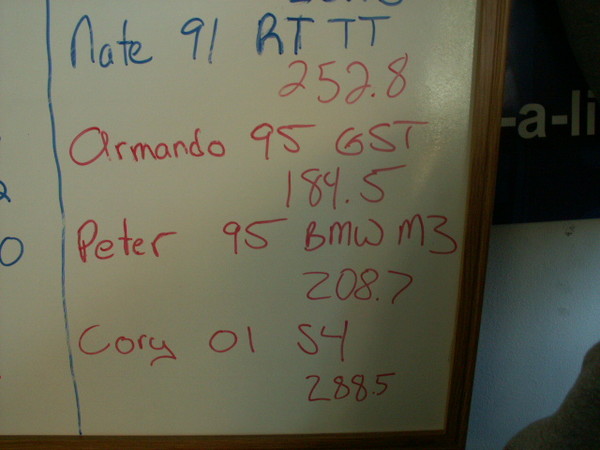 Nate 91 RT TT
252.8
Armando 95 GST
184.5
Peter 95 BMW M3
208.7
Cory 01 S4
288.5
-a-li
2
0